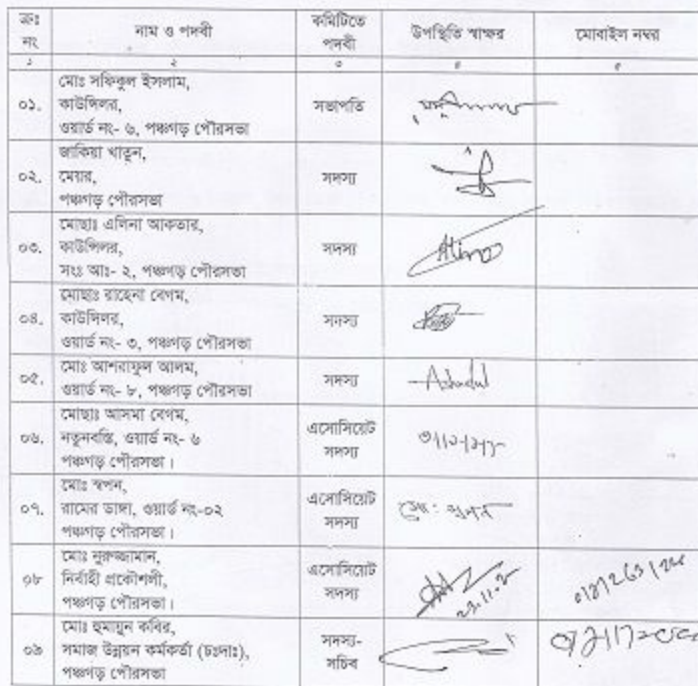 ক্রঃ নং নাম ও পদবী কমিটিতে পদবী উপস্থিতি স্বাক্ষর মোবাইল নম্বর
১ ২ ৩ ৪ ৫
০১. মোঃ সফিকুল ইসলাম,
কাউন্সিলর,
ওয়ার্ড নং- ৬, পঞ্চগড় পৌরসভা
সভাপতি
০২. জাকিয়া খাতুন,
মেয়র,
পঞ্চগড় পৌরসভা
সদস্য
০৩. মোছাঃ এলিনা আকতার,
কাউন্সিলর,
সংঃ আঃ- ২, পঞ্চগড় পৌরসভা
সদস্য
Alina
০৪. মোছাঃ রাহেনা বেগম,
কাউন্সিলর,
ওয়ার্ড নং- ৩, পঞ্চগড় পৌরসভা
সদস্য
০৫. মোঃ আশরাফুল আলম,
ওয়ার্ড নং- ৮, পঞ্চগড় পৌরসভা
সদস্য
০৬. মোছাঃ আসমা বেগম,
নতুনবস্তি, ওয়ার্ড নং- ৬
পঞ্চগড় পৌরসভা।
এসোসিয়েট
সদস্য
০৭. মোঃ স্বপন,
রামের ডাঙ্গা, ওয়ার্ড নং-০২
পঞ্চগড় পৌরসভা।
এসোসিয়েট
সদস্য
মো: স্বপন
০৮ মোঃ নুরুজ্জামান,
নির্বাহী প্রকৌশলী,
পঞ্চগড় পৌরসভা।
এসোসিয়েট
সদস্য
০৯ মোঃ হুমায়ুন কবির,
সমাজ উন্নয়ন কর্মকর্তা (চঃদাঃ),
পঞ্চগড় পৌরসভা
সদস্য-
সচিব